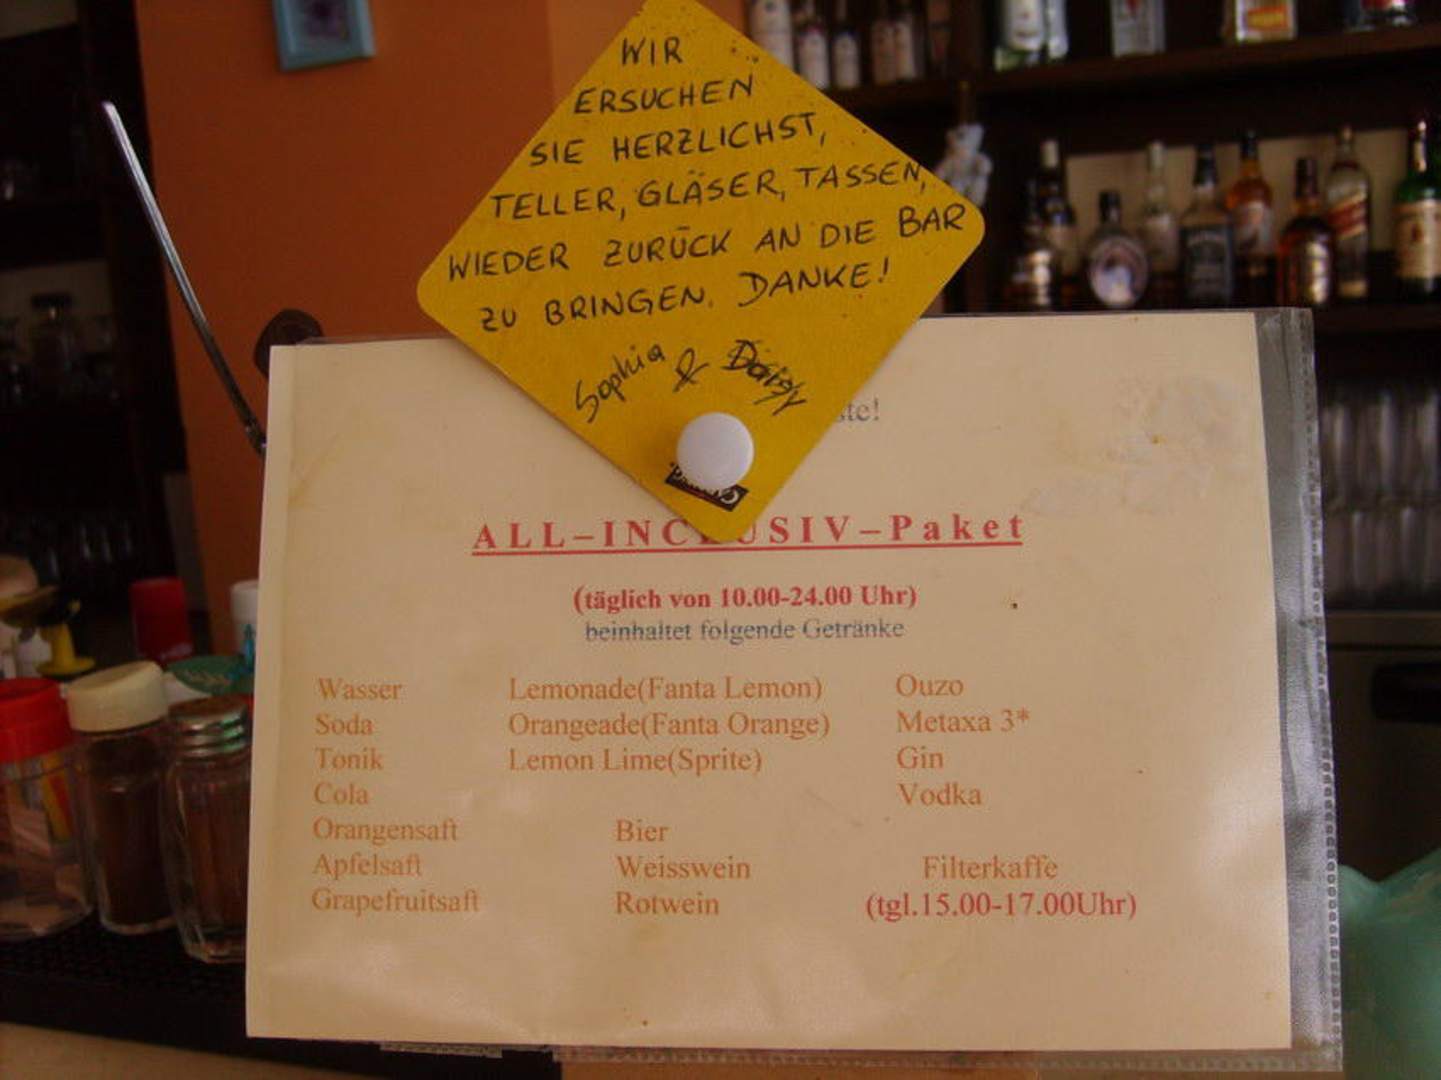 WIR
ERSUCHEN
SIE HERZLICHST,
TELLER, GLÄSER, TASSEN,
WIEDER ZURÜCK AN DIE BAR
ZU BRINGEN. DANKE!
Sophia & Daisy
ALL-INCLUSIV-Paket
(täglich von 10.00-24.00 Uhr)
beinhaltet folgende Getränke
Wasser Lemonade(Fanta Lemon) Ouzo
Soda Orangeade(Fanta Orange) Metaxa 3*
Tonik Lemon Lime(Sprite) Gin
Cola Vodka
Orangensaft Bier
Apfelsaft Weisswein Filterkaffe
Grapefruitsaft Rotwein (tgl.15.00-17.00Uhr)